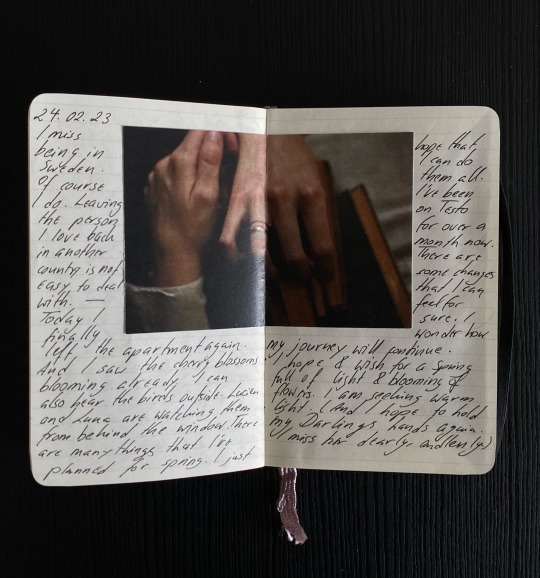 24.02.23
I miss
being in
Sweden.
Of course
I do. Leaving
the person
I love back
in another
country is not
easy to deal
with. —
Today I
finally
left the apartment again.
And I saw the cherry blossoms
blooming already. I can
also hear the birds outside. Lucien
and Luna are watching them
from behind the window. There
are many things that I've
planned for spring. I just
hope that
I can do
them all.
I've been
on Testo
for over a
month now.
There are
some changes
that I can
feel for
sure. I
wonder how
my journey will continue.
I hope & wish for a Spring
full of light & blooming of
flowers. I am seeking warm
light. (And I hope to hold
my Darlings hands again.
I miss her dearly, endlessly)